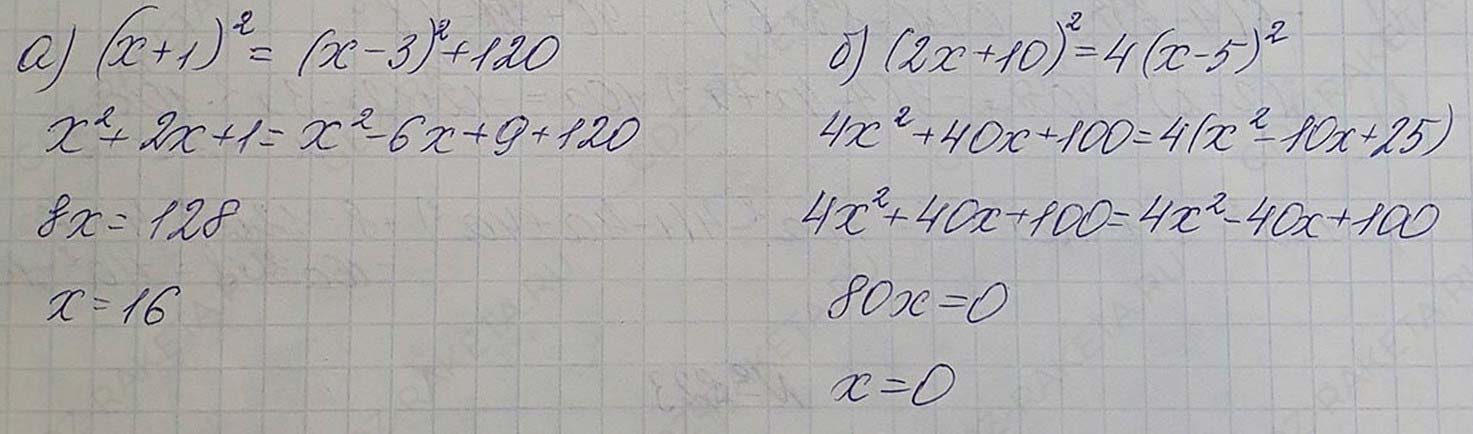 а) (x+1)² = (x-3)²+120
x²+2x+1=x²-6x+9+120
8x=128
x=16
б) (2x+10)²=4(x-5)²
4x²+40x+100=4(x²-10x+25)
4x²+40x+100=4x²-40x+100
80x=0
x=0